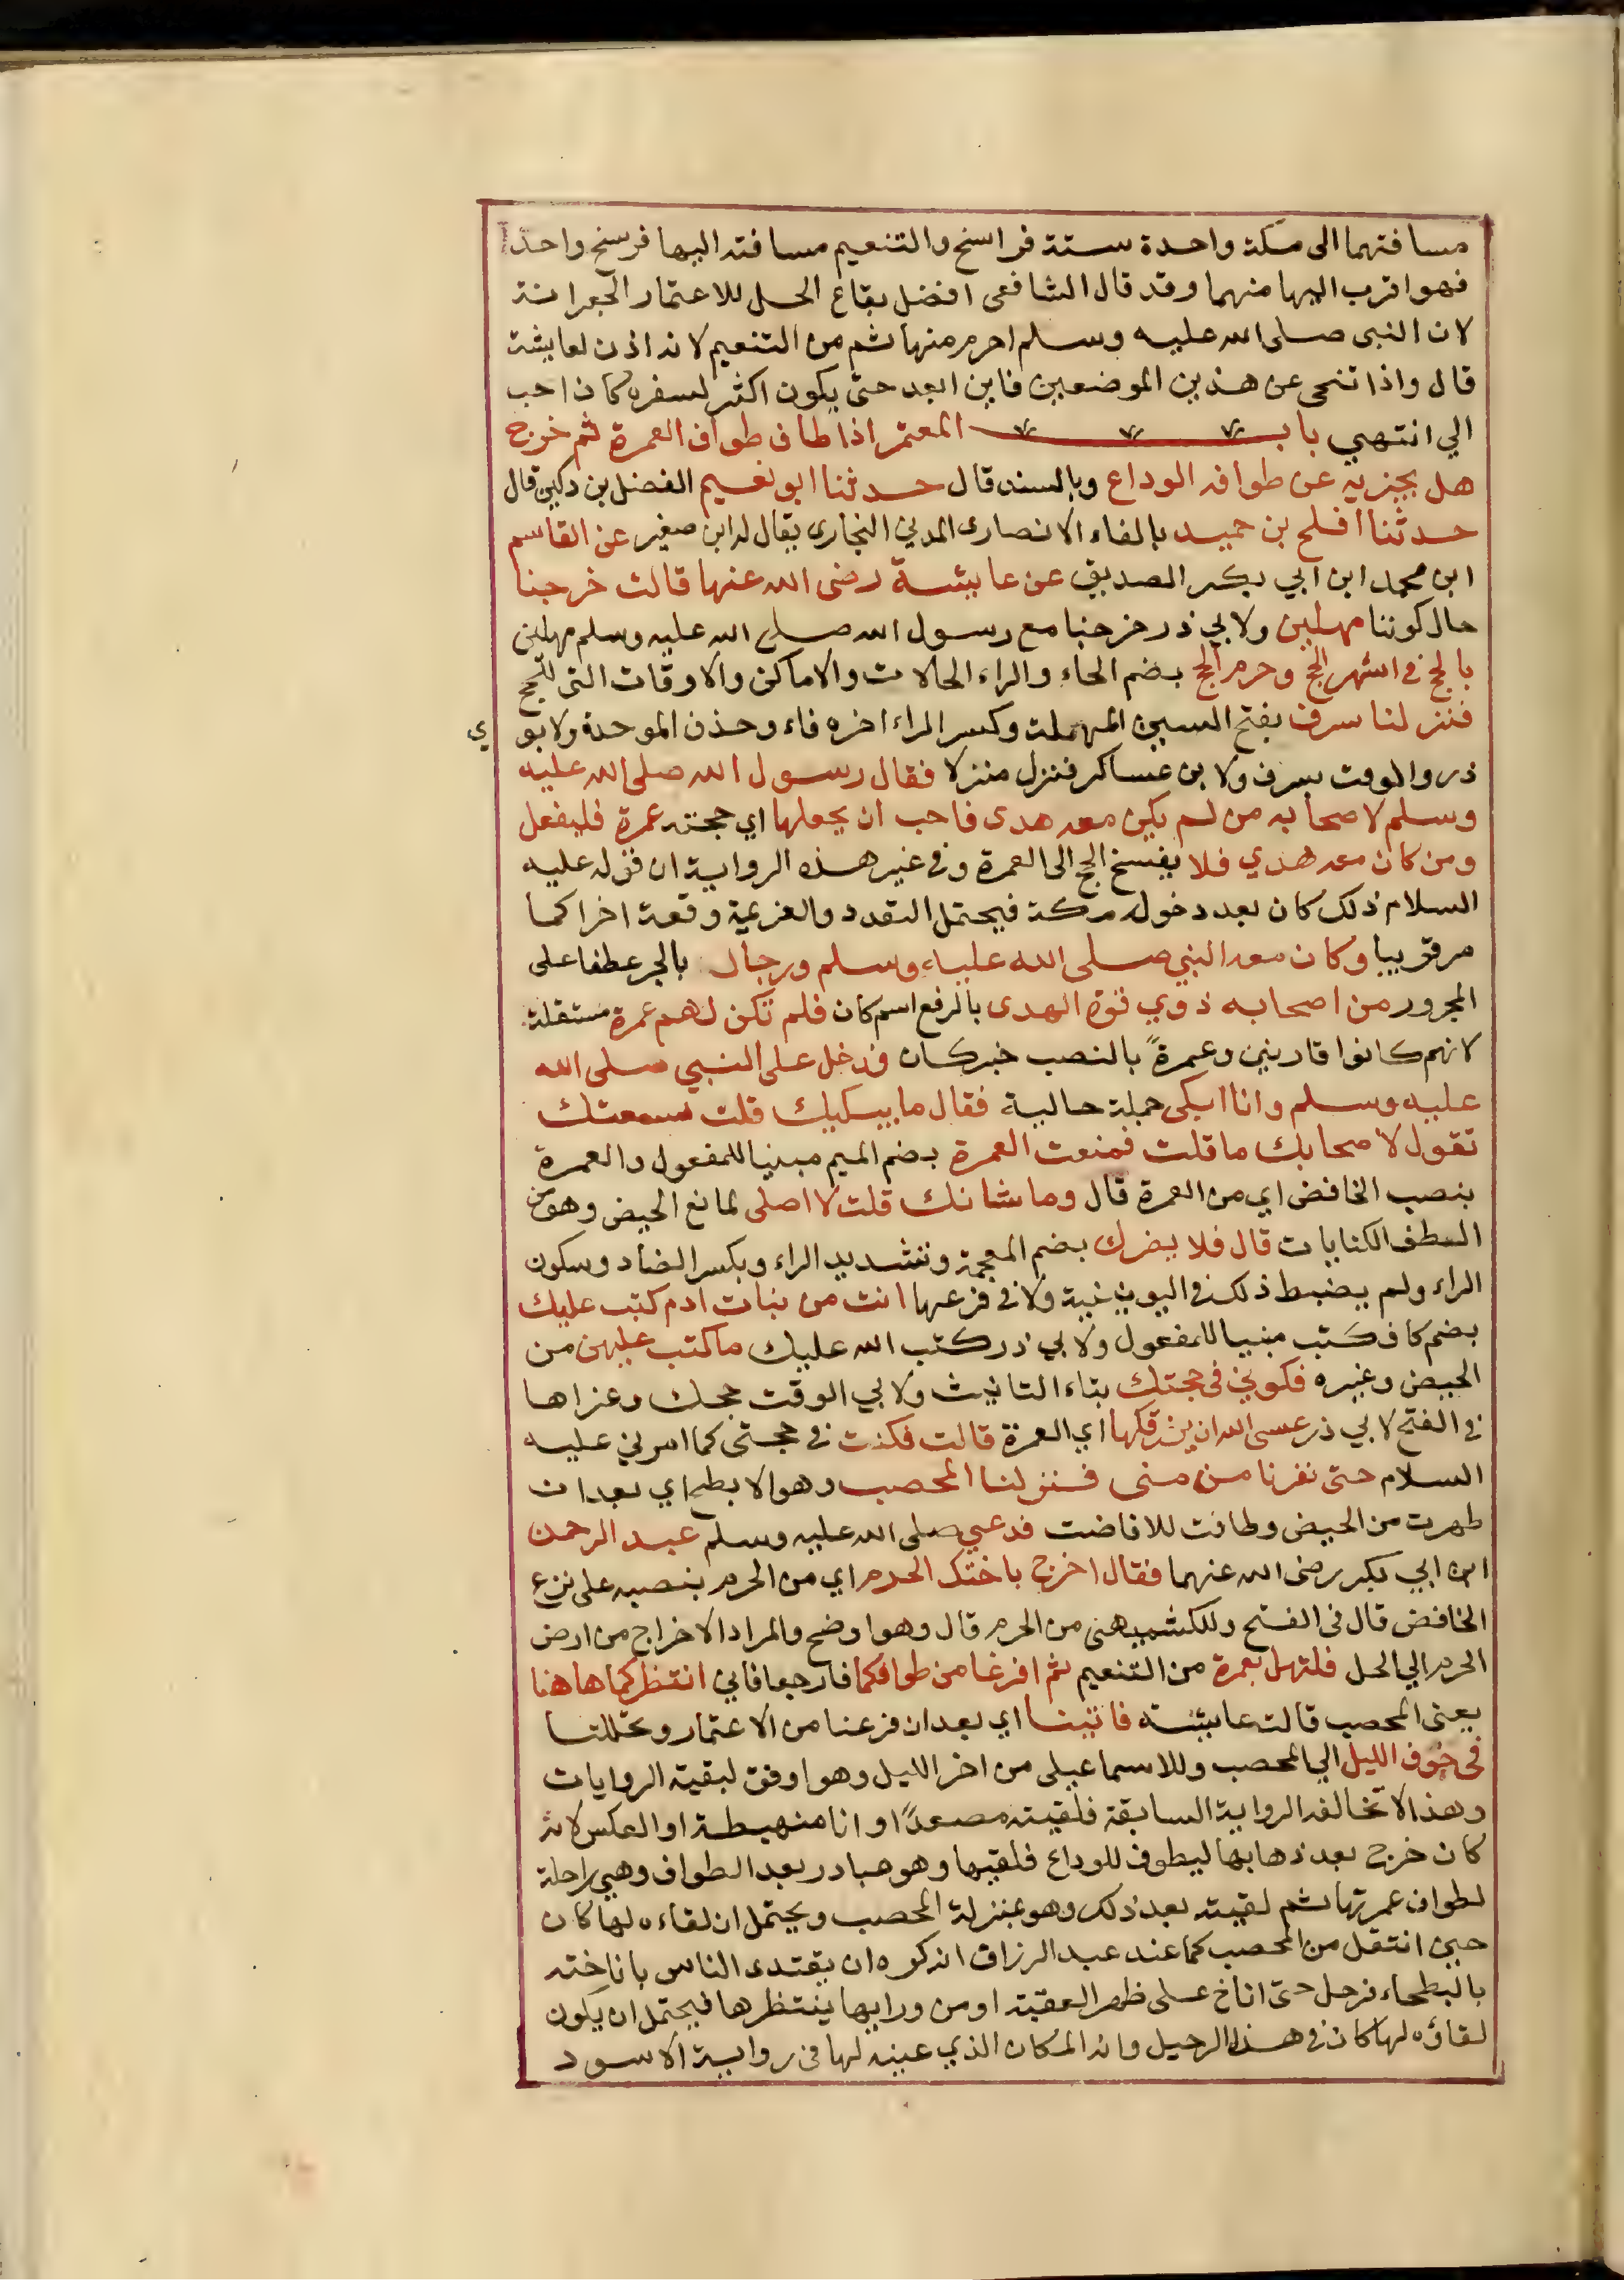 مسافتهما الى مكة واحدة ستة فراسخ والتنعيم مسافته اليها فرسخ واحد
فهو اقرب اليها منهما وقد قال الشافعى افضل بقاع الحل للاعتمار الجعرانة
لان النبى صلى الله عليه وسلم احرم منها ثم من التنعيم لانه اذن لعايشة
قال واذا تنحى عن هذين الموضعين فاين ابعد حتى يكون اكثر لسفره كان احب
الي انتهي باب المعتمر اذا طاف طواف العمرة ثم خرج
هل يجزيه عن طوافه الوداع وبالسند قال حدثنا ابو نعيم الفضل بن دكين قال
حدثنا افلح بن حميد بالفاء الانصارى المدني النجارى يقال له ابن صغير عن القاسم
ابن محمد ابن ابي بكر الصديق عن عايشة رضى الله عنها قالت خرجنا
حال كوننا مهلين ولابي ذر خرجنا مع رسول الله صلى الله عليه وسلم مهلين
بالحج في اشهر الحج وحرم الحج بضم الحاء والراء الحالات والاماكن والاوقات التى للحج
فنزلنا سرف بفتح السين المهملة وكسر الراء اخره فاء وحذف الموحدة ولابو ي
ذر والوقت بسرف ولابن عساكر فنزل منزلا فقال رسول الله صلى الله عليه
وسلم لاصحابه من لم يكن معه هدى فاحب ان يجعلها اي حجته عمرة فليفعل
ومن كان معه هدي فلا يفسخ الحج الى العمرة وفي غير هذه الرواية ان قوله عليه
السلام ذلك كان بعد دخوله مكة فيحتمل التعدد والعزيمة وقعة اخرا كما
مر قريبا وكان معه النبي صلى الله عليه وسلم ورجال بالجر عطفا على
المجرور من اصحابه ذوي قوة الهدى بالرفع اسم كان فلم تكن لهم عمرة مستقلة
لانهم كانوا قارنين وعمرةً بالنصب خبر كان فدخل على النبي صلى الله
عليه وسلم وانا ابكى جملة حالية فقال ما يبكيك قلت سمعتك
تقول لاصحابك ما قلت فمنعت العمرة بضم الميم مبنيا للمفعول والعمرة
بنصب الخافض اي من العمرة قال وما شانك قلت لا اصلى لمانع الحيض وهو من
الطف الكنايات قال فلا يضرك بضم المعجمة وتشديد الراء وبكسر الضاد وسكون
الراء ولم يضبط ذلك في اليونينية ولا في فرعها انت من بنات ادم كتب عليك
بضم كاف كُتب مبنيا للمفعول ولابي ذر كتب الله عليك ما كتب عليهن من
الحيض وغيره فكوني فى حجتك بتاء التانيث ولابي الوقت حجك وعزاها
في الفتح لابي ذر عسى الله ان يرزقكها اي العمرة قالت فكنت في حجتى كما امرني عليه
السلام حتى نفرنا من منى فنزلنا المحصب وهو الابطح اي بعد ان
طهرت من الحيض وطافت للافاضت فدعي صلى الله عليه وسلم عبد الرحمن
ابن ابي بكر رضى الله عنهما فقال اخرج باختك الحرم اي من الحرم بنصبه على نزع
الخافض قال فى الفتح وللكشميهنى من الحرم قال وهو اوضح والمراد الاخراج من ارض
الحرم الي الحل فلتهل بعمرة من التنعيم ثم افرغا من طوافكما فارجعا فاني انتظركما هاهنا
يعنى المحصب قالت عايشة فاتينا اي بعد ان فرعنا من الاعتمار وتحللنا
فى جوف الليل الي المحصب وللاسماعيلى من اخر الليل وهو اوفق لبقية الروايات
وهذا لا تخالفه الرواية السابقة فلقيته مصعدًا وانا منهبطة او العكس لانه
كان خرج بعد ذهابها ليطوف للوداع فلقيها وهو صادر بعد الطواف وهي راحلة
لطواف عمرتها ثم لقيته بعد ذلك وهو بمنزلة المحصب ويحتمل ان لقاءه لها كان
حين انتقل من المحصب كما عند عبد الرزاق انه كره ان يقتدى الناس باناخته
بالبطحاء فرحل حتى اناخ على ظهر العقبة او من ورايها ينتظرها فيحتمل ان يكون
لقاؤه لها كان في هذا الرحيل وانه المكان الذي عينه لها فى رواية الاسود